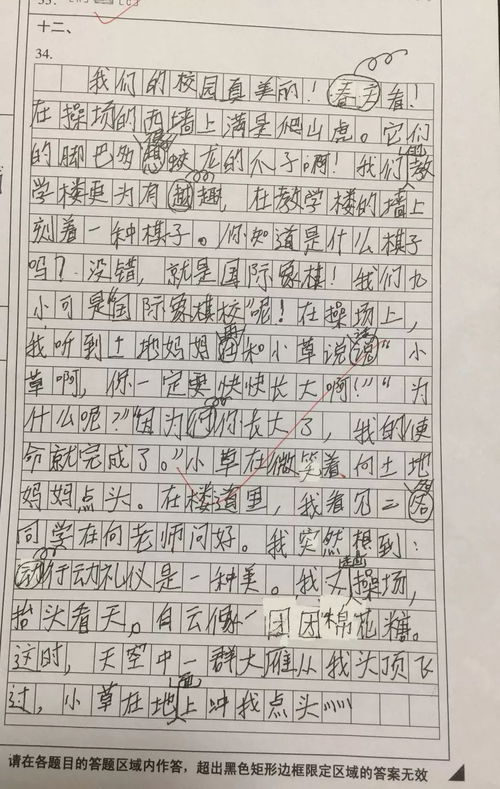 十二、
34.
我们的校园真美丽！春天看！
在操场的西墙上满是爬山虎。它们
的脚巴多像蛟龙的爪子啊！我们的教
学楼更为有趣，在教学楼的墙上
刻着一种棋子。你知道是什么棋子
吗？没错，就是国际象棋！我们九
小可是“国际象棋校”呢！在操场上，
我听到土地妈妈在和小草说话“小
草啊，你一定要快快长大啊！”“为
什么呢？”“因为你长大了，我的使
命就完成了。”小草在微笑着、向土地
妈妈点头。在楼道里，我看见二名
同学在向老师问好。我突然想到：
行动礼仪是一种美。我又操场，
抬头看天，白云像一团团棉花糖。
这时，天空中一群大雁从我头顶飞
过，小草在地上冲我点头
请在各题目的答题区域内作答，超出黑色矩形边框限定区域的答案无效